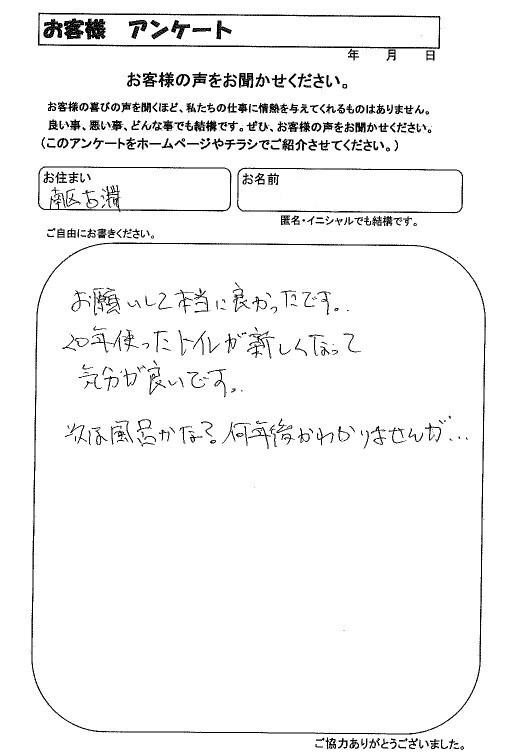 お客様 アンケート
年 月 日
お客様の声をお聞かせください。
お客様の喜びの声を聞くほど、私たちの仕事に情熱を与えてくれるものはありません。
良い事、悪い事、どんな事でも結構です。ぜひ、お客様の声をお聞かせください。
(このアンケートをホームページやチラシでご紹介させてください。)
お住まい
南区古淵
お名前
匿名・イニシャルでも結構です。
ご自由にお書きください。
お願いして本当に良かったです。
20年使ったトイレが新しくなって
気分が良いです。
次は風呂かなぁ。何年後かわかりませんが…
ご協力ありがとうございました。